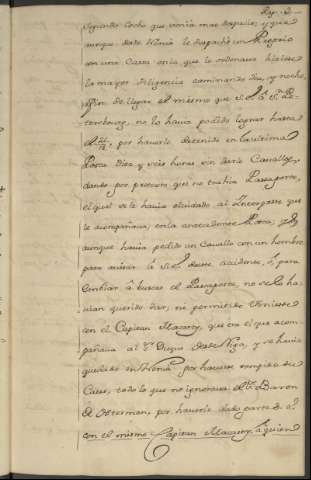 Pag. 2.
segundo coche que venia mas despacio; y que
aunque desde Vienna le despachó un Proprio
con una Carta en la que le ordenava hiciese
la mayor diligencia caminando dia, y noche,
afin de llegar el mismo que S. E. à Sn. Pe-
tersbourg, no lo havia podido lograr hasta
el; por haverle detenido en la ultima
Posta diez y seis horas sin darle Cavallos,
dando por pretexto que no trahia Passaporte,
el qual se le havia olvidado al Interprete que
le acompañava, en la antecedente Posta; y
aunque havia pedido un Cavallo con un hombre
para avisar à S. E. deste accidente, ó para
embiar à buscar el Passaporte, no se lo ha-
vian querido dar, ni permitido viniesse
con el Capitan Macaroy, que era el que acom-
pañava al Sr. Duque desde Riga, y se havia
quedado en por haverse rompido su
Coche, todo lo que no ignorava el Sr. Baron
de Osterman, por haverle dado parte de ello
con el mismo Capitan Macaroy, à quien